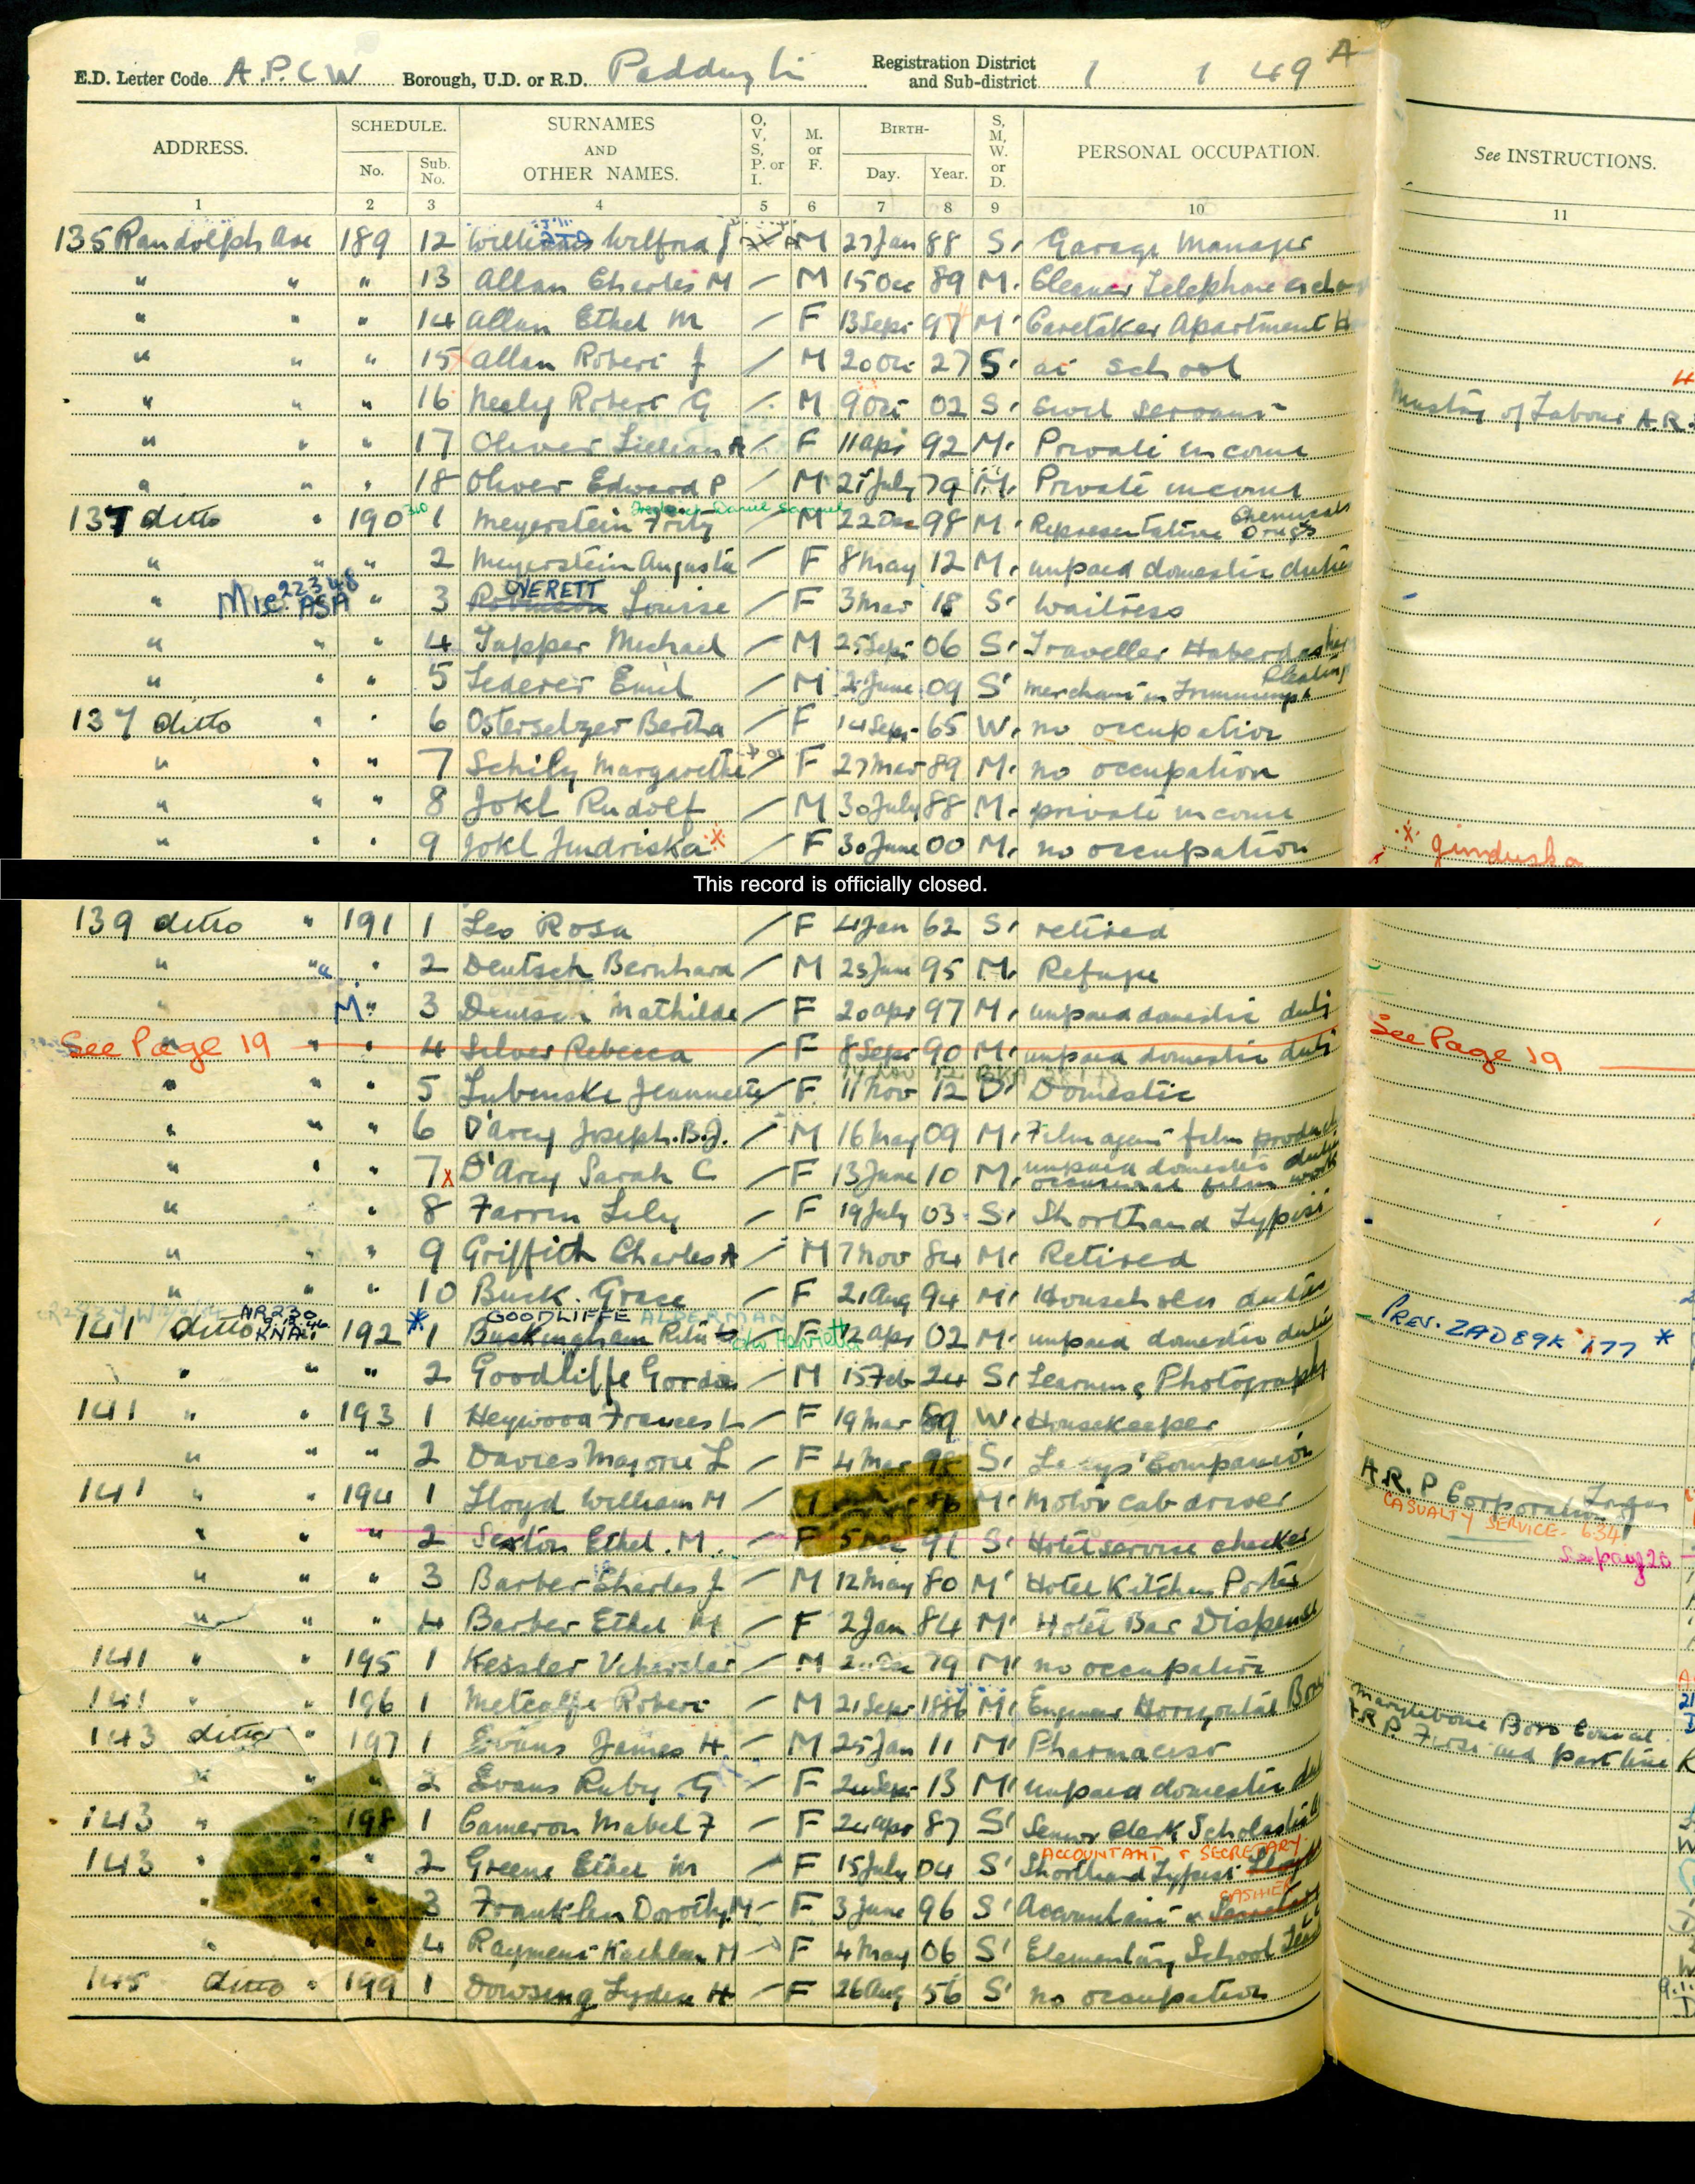 E.D. Letter Code A.P.C W Borough, U.D. or R.D. Paddington Registration District and Sub-district 1 1 49 A
ADDRESS. SCHEDULE. No. Sub. No. SURNAMES AND OTHER NAMES. O, V, S, P. or I. M. or F. BIRTH- Day. Year. S, M, W. or D. PERSONAL OCCUPATION. See INSTRUCTIONS.
1 2 3 4 5 6 7 8 9 10 11
135 Randolph Ave 189 12 Williams Wilfred J M 27 Jan 88 S. Garage Manager
" " " 13 Allan Charles M / M 15 Dec 89 M. Cleaner Telephone
" " " 14 Allan Ethel M / F 13 Sept 97 M. Caretaker Apartment H
" " " 15 Allan Robert J / M 20 Oct 27 S. at school
" " " 16 Neely Robert G M 9 Oct 02 S. Civil Servant Ministry of Labour A.R.
" " " 17 Oliver Lillian A / F 11 Apr 92 M. Private income
" " " 18 Oliver Edward P M 21 July 79 M. Private income
137 ditto " 190 1 Meyerstein Fritz Frederick Daniel Samuel M 22 Dec 98 M. Representative Chemicals Drugs
" " " 2 Meyerstein Augusta / F 8 May 12 M. unpaid domestic duties
" Mic 22348 ASA " 3 Robinson OVERETT Louise / F 3 Mar 18 S. Waitress
" " " 4 Tapper Michael / M 25 Sept 06 S. Traveller Haberdashery
" " " 5 Lederer Emil / M 2 June 09 S. Merchant in Trimmings Pleating
137 ditto " " 6 Ostersetzer Bertha / F 14 Sept 65 W. no occupation
" " " 7 Schily Margarethe / F 27 Mar 89 M. no occupation
" " " 8 Jokl Rudolf / M 30 July 88 M. private income
" " " 9 Jokl Jindriska / F 30 June 00 M. no occupation
This record is officially closed.
139 ditto " 191 1 Leo Rosa / F 4 Jan 62 S. retired
" " " 2 Deutsch Bernhard / M 25 June 95 M. Refugee
" M " 3 Deutsch Mathilde / F 20 Apr 97 M. unpaid domestic duti
See Page 19 " " 4 Silver Rebecca F 8 Sept 90 M. unpaid domestic duti See Page 19
" " " 5 Lubinski Jeannette / F. 11 Nov 12 D. Domestic
" " " 6 D'Arcy Joseph.B.J. / M 16 May 09 M. Film agent film product
" " " 7 x D'Arcy Sarah C / F 13 June 10 M. unpaid domestic duties occasional film work
" " 8 Farrin Lily / F 19 July 03 S. Shorthand Typist
" " " 9 Griffith Charles A / M 7 Nov 84 M. Retired
" " " 10 Buck. Grace / F 21 Aug 94 M. Household duties
141 ditto NR230 KNAU 192 * 1 Buckingham GOODLIFFE ALDERMAN Rita F 12 Apr 02 M. unpaid domestic duties PREV. ZAD 89K 177 *
" " " 2 Goodliffe Gordon / M 15 Feb 24 S. Learning Photography
141 " " 193 1 Heywood Frances L / F 19 Mar 69 W. Housekeeper
" " " 2 Davies Marjorie L / F 4 Mar 98 S. Ladys' Companion
141 " " 194 1 Lloyd William H / 86 M. Motor cab driver A.R.P CASUALTY SERVICE. 634
" " " 2 Sexton Ethel. M. F 5 Dec 91 S. Hotel service checker See page 20
" " " 3 Barber Charles J / M 12 May 80 M. Hotel Kitchen Porter
" " " 4 Barber Ethel M / F 2 Jan 84 M. Hotel Bar Dispense
141 " " 195 1 Kessler / M 79 M. no occupation
141 " " 196 1 Metcalfe Robert / M 21 Sept 1886 M. Engineer Horizontal Bor Marylebone Boro Council
143 ditto " 197 1 Evans James H. / M 25 Jan 11 M. Pharmacist A.R.P. First aid part time
" " " 2 Evans Ruby. G / F 2 Sept 13 M. unpaid domestic du
143 " 198 1 Cameron Mabel F / F 24 Apr 87 S. Senior Clerk Scholastic
143 " " 2 Greene Ethel M / F 15 July 04 S. Shorthand Typist ACCOUNTANT & SECRETARY
" " 3 Franklin Dorothy M / F 3 June 96 S. Accountant & Secretary CASHIER
" " 4 Rayment Kathleen M / F 4 May 06 S. Elementary School Teach
145 ditto " 199 1 Dowsing Lydia H / F 26 Aug 56 S. no occupation